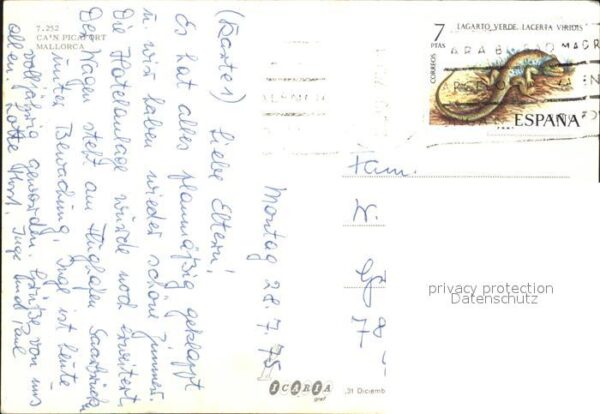 7.252
CA'N PICAFORT
MALLORCA
Montag 28.7.75
(Karte 1) Liebe Eltern!
Es hat alles planmäßig geklappt
u. wir haben wieder schöne Zimmer.
Die Hotelanlage wurde noch erweitert.
Der Wagen steht am Flughafen Saarbrücken
unter Bewachung. Inge ist heute
volljährig geworden. Grüße von uns
allen. Lotte, Horst, Inge und Paul
LAGARTO VERDE. LACERTA VIRIDIS
7
PTAS
CORREOS
ESPAÑA
Fam.
W.
privacy protection
Datenschutz
ICARIA
graf
.31 Diciemb